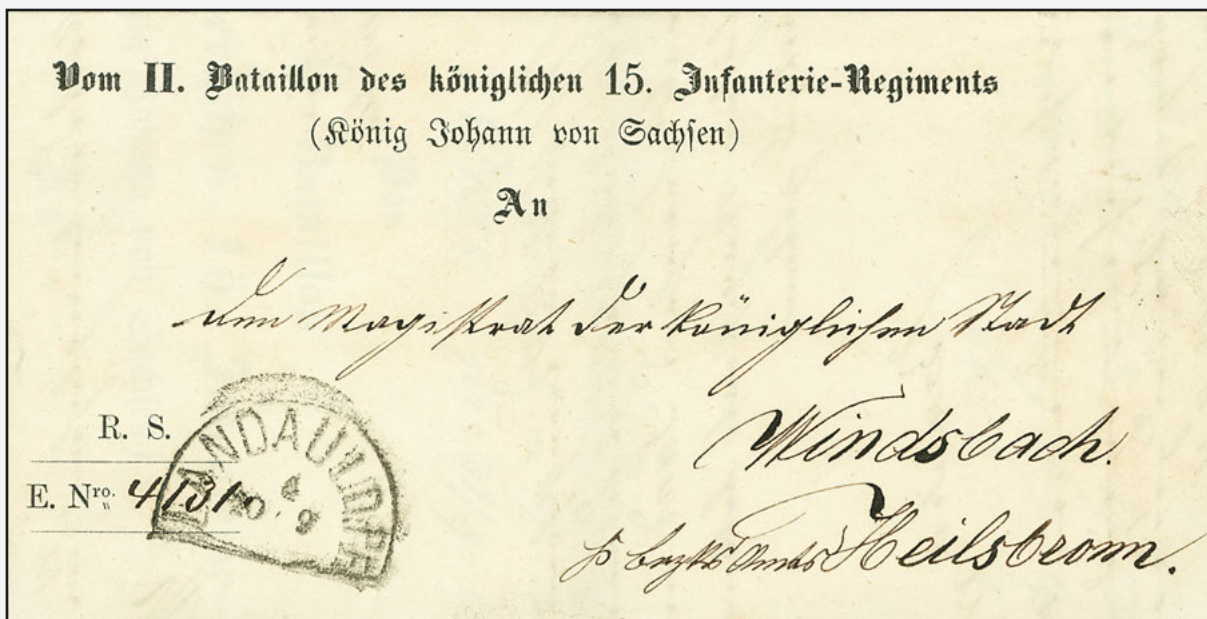 Vom II. Bataillon des königlichen 15. Infanterie-Regiments
(König Johann von Sachsen)
An
den Magistrat der königlichen Stadt
Windsbach.
R. S.
E. Nro. 4131
LANDAU
Heilsbronn.